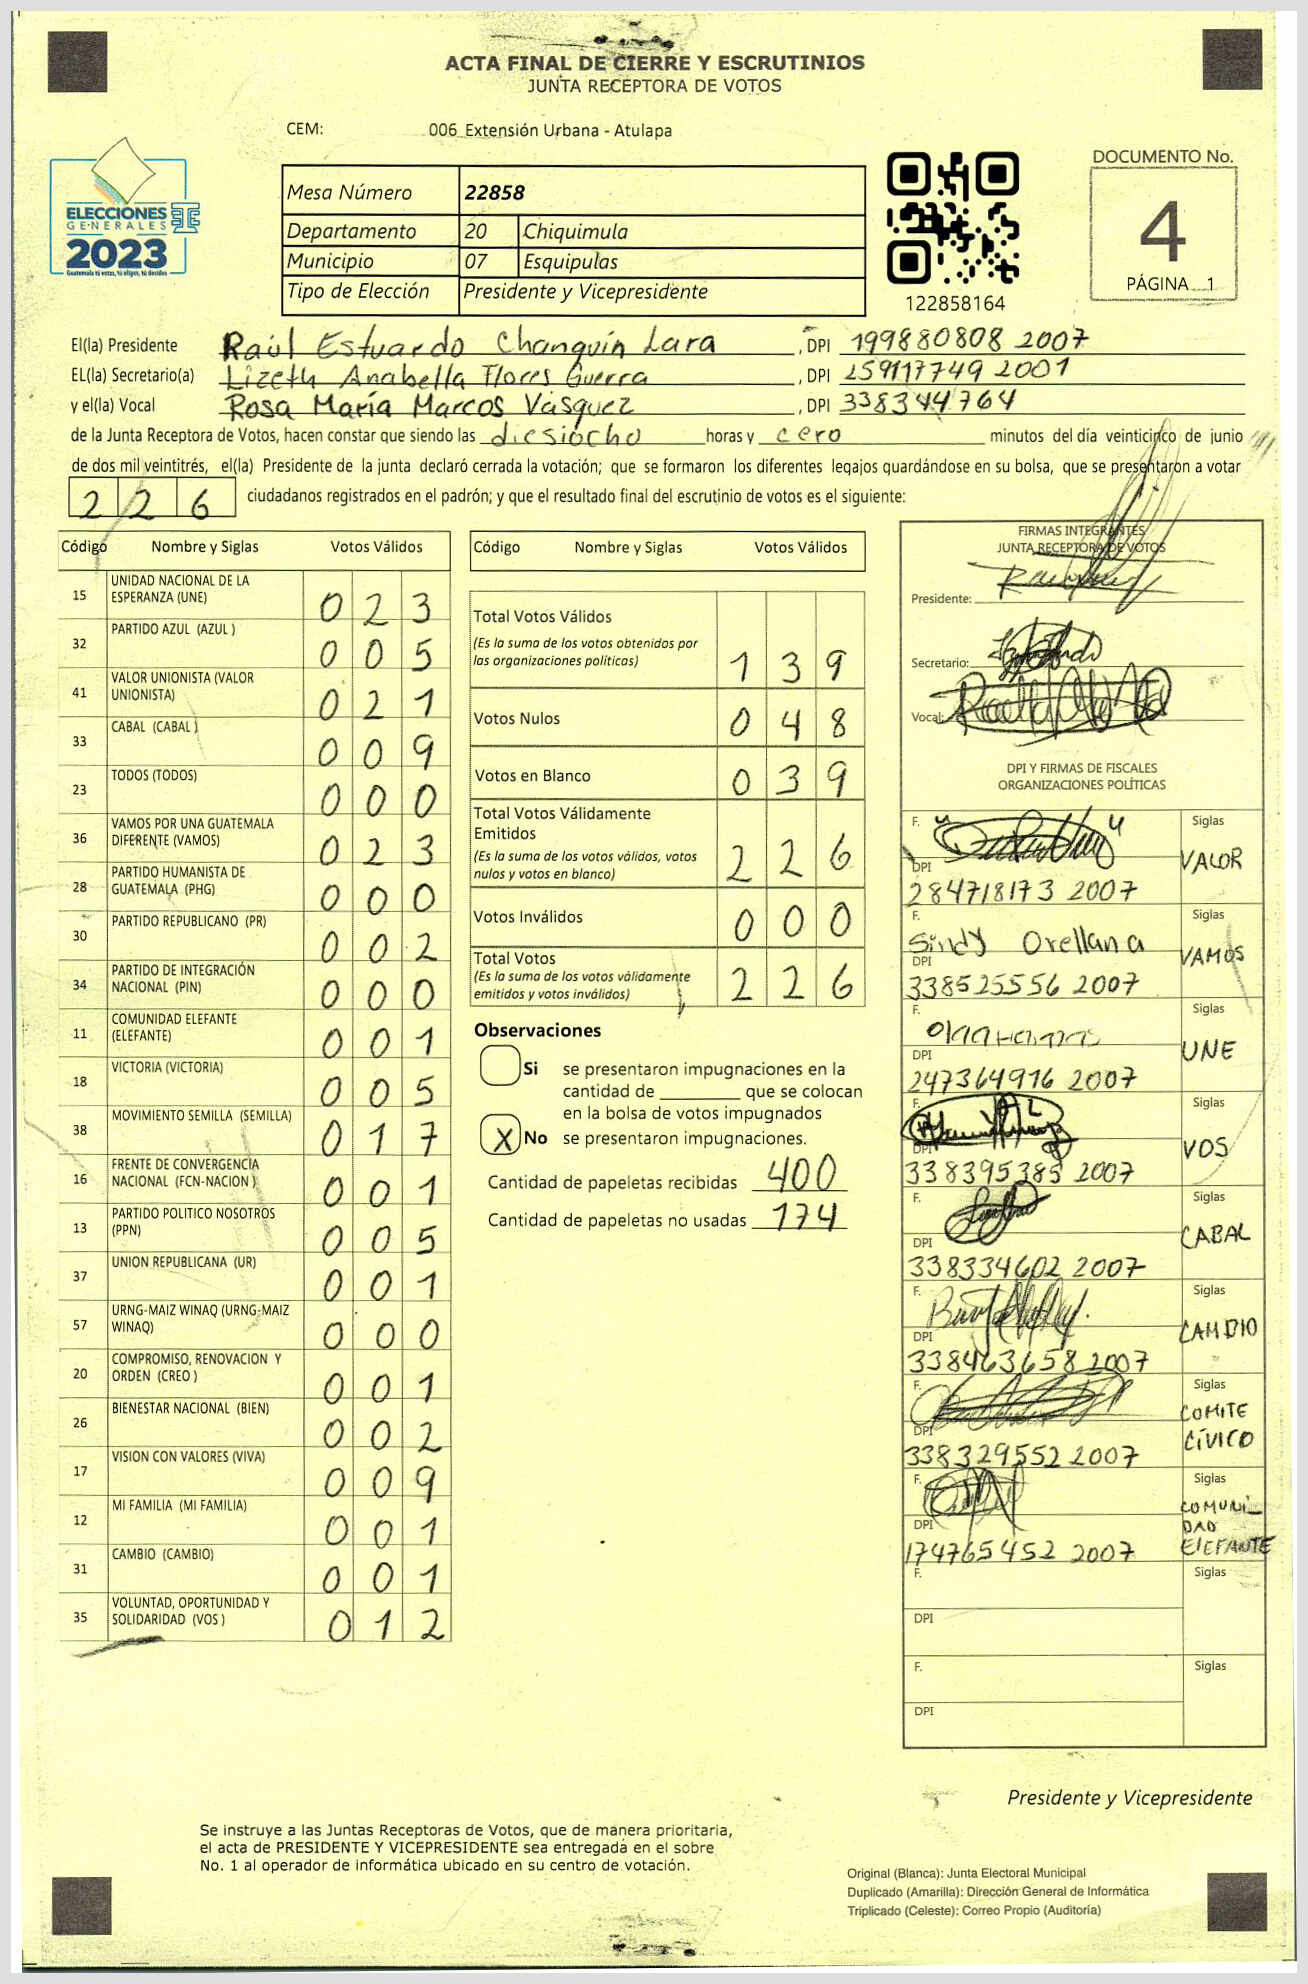 ACTA FINAL DE CIERRE Y ESCRUTINIOS
JUNTA RECEPTORA DE VOTOS
CEM: 006 Extensión Urbana - Atulapa
ELECCIONES
GENERALES
2023
Guatemala tú votas, tú eliges, tú decides
Mesa Número 22858
Departamento 20 Chiquimula
Municipio 07 Esquipulas
Tipo de Elección Presidente y Vicepresidente
122858164
DOCUMENTO No.
4
PÁGINA 1
El(la) Presidente Raúl Estuardo Changuín Lara, DPI 199880808 2007
EL(la) Secretario(a) Lizeth Anabella Flores Guerra, DPI 259117749 2001
y el(la) Vocal Rosa María Marcos Vásquez, DPI 338344764
de la Junta Receptora de Votos, hacen constar que siendo las diesiocho horas y cero minutos del día veinticinco de junio
de dos mil veintitrés, el(la) Presidente de la junta declaró cerrada la votación; que se formaron los diferentes legajos guardándose en su bolsa, que se presentaron a votar
226 ciudadanos registrados en el padrón; y que el resultado final del escrutinio de votos es el siguiente:
Código Nombre y Siglas Votos Válidos
15 UNIDAD NACIONAL DE LA
ESPERANZA (UNE) 023
32 PARTIDO AZUL (AZUL ) 005
41 VALOR UNIONISTA (VALOR
UNIONISTA) 021
33 CABAL (CABAL ) 009
23 TODOS (TODOS) 000
36 VAMOS POR UNA GUATEMALA
DIFERENTE (VAMOS) 023
28 PARTIDO HUMANISTA DE
GUATEMALA (PHG) 000
30 PARTIDO REPUBLICANO (PR) 002
34 PARTIDO DE INTEGRACIÓN
NACIONAL (PIN) 000
11 COMUNIDAD ELEFANTE
(ELEFANTE) 001
18 VICTORIA (VICTORIA) 005
38 MOVIMIENTO SEMILLA (SEMILLA) 017
16 FRENTE DE CONVERGENCIA
NACIONAL (FCN-NACION ) 001
13 PARTIDO POLITICO NOSOTROS
(PPN) 005
37 UNION REPUBLICANA (UR) 001
57 URNG-MAIZ WINAQ (URNG-MAIZ
WINAQ) 000
20 COMPROMISO, RENOVACION Y
ORDEN (CREO ) 001
26 BIENESTAR NACIONAL (BIEN) 002
17 VISION CON VALORES (VIVA) 009
12 MI FAMILIA (MI FAMILIA) 001
31 CAMBIO (CAMBIO) 001
35 VOLUNTAD, OPORTUNIDAD Y
SOLIDARIDAD (VOS ) 012
Código Nombre y Siglas Votos Válidos
Total Votos Válidos
(Es la suma de los votos obtenidos por
las organizaciones políticas) 139
Votos Nulos 048
Votos en Blanco 039
Total Votos Válidamente
Emitidos
(Es la suma de los votos válidos, votos
nulos y votos en blanco) 226
Votos Inválidos 000
Total Votos
(Es la suma de los votos válidamente
emitidos y votos inválidos) 226
Observaciones
Si se presentaron impugnaciones en la
cantidad de ________ que se colocan
en la bolsa de votos impugnados
X No se presentaron impugnaciones.
Cantidad de papeletas recibidas 400
Cantidad de papeletas no usadas 174
FIRMAS INTEGRANTES
JUNTA RECEPTORA DE VOTOS
Presidente:
Secretario:
Vocal:
DPI Y FIRMAS DE FISCALES
ORGANIZACIONES POLÍTICAS
F. Siglas
DPI VALOR
284718173 2007
F. Sindy Orellana Siglas
DPI VAMOS
338525556 2007
F. Siglas
DPI UNE
247364916 2007
F. Siglas
DPI VOS
338395385 2007
F. Siglas
DPI CABAL
338334602 2007
F. Siglas
DPI CAMBIO
338463658 2007
F. Siglas
DPI COMITE
CÍVICO
338329552 2007
F. Siglas
DPI COMUNI-
DAD
ElEFANTE
174765452 2007
F. Siglas
DPI
F. Siglas
DPI
Presidente y Vicepresidente
Se instruye a las Juntas Receptoras de Votos, que de manera prioritaria,
el acta de PRESIDENTE Y VICEPRESIDENTE sea entregada en el sobre
No. 1 al operador de informática ubicado en su centro de votación.
Original (Blanca): Junta Electoral Municipal
Duplicado (Amarilla): Dirección General de Informática
Triplicado (Celeste): Correo Propio (Auditoría)